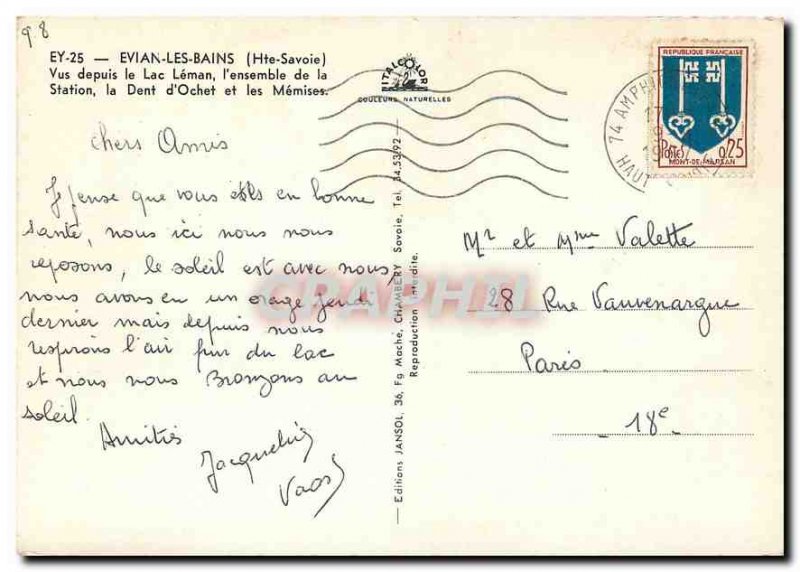 98
EY-25 - EVIAN-LES-BAINS (Hte-Savoie)
Vus depuis le Lac Léman, l'ensemble de la
Station, la Dent d'Ochet et les Mémises.
ITALCOLOR
COULEURS NATURELLES
REPUBLIQUE FRANÇAISE
POSTES 0,25
MONT-DE-MARSAN
74 AMPHI
17
9
19
HAUTE
chers Amis
Je pense que vous êtes en bonne
santé, nous ici nous nous
reposons, le soleil est avec nous,
nous avons eu un orage jeudi
dernier mais depuis nous
respirons l'air pur du lac
et nous nous Bronzons au
soleil.
Amitiés
Jacqueline
Editions JANSOL, 36, Fg Maché, CHAMBERY Savoie, Tel. 34.53.92 -
Reproduction interdite.
CARAPHIL
Mr et Mme Valette
28 Rue Vauvenargue
Paris
- 18e -